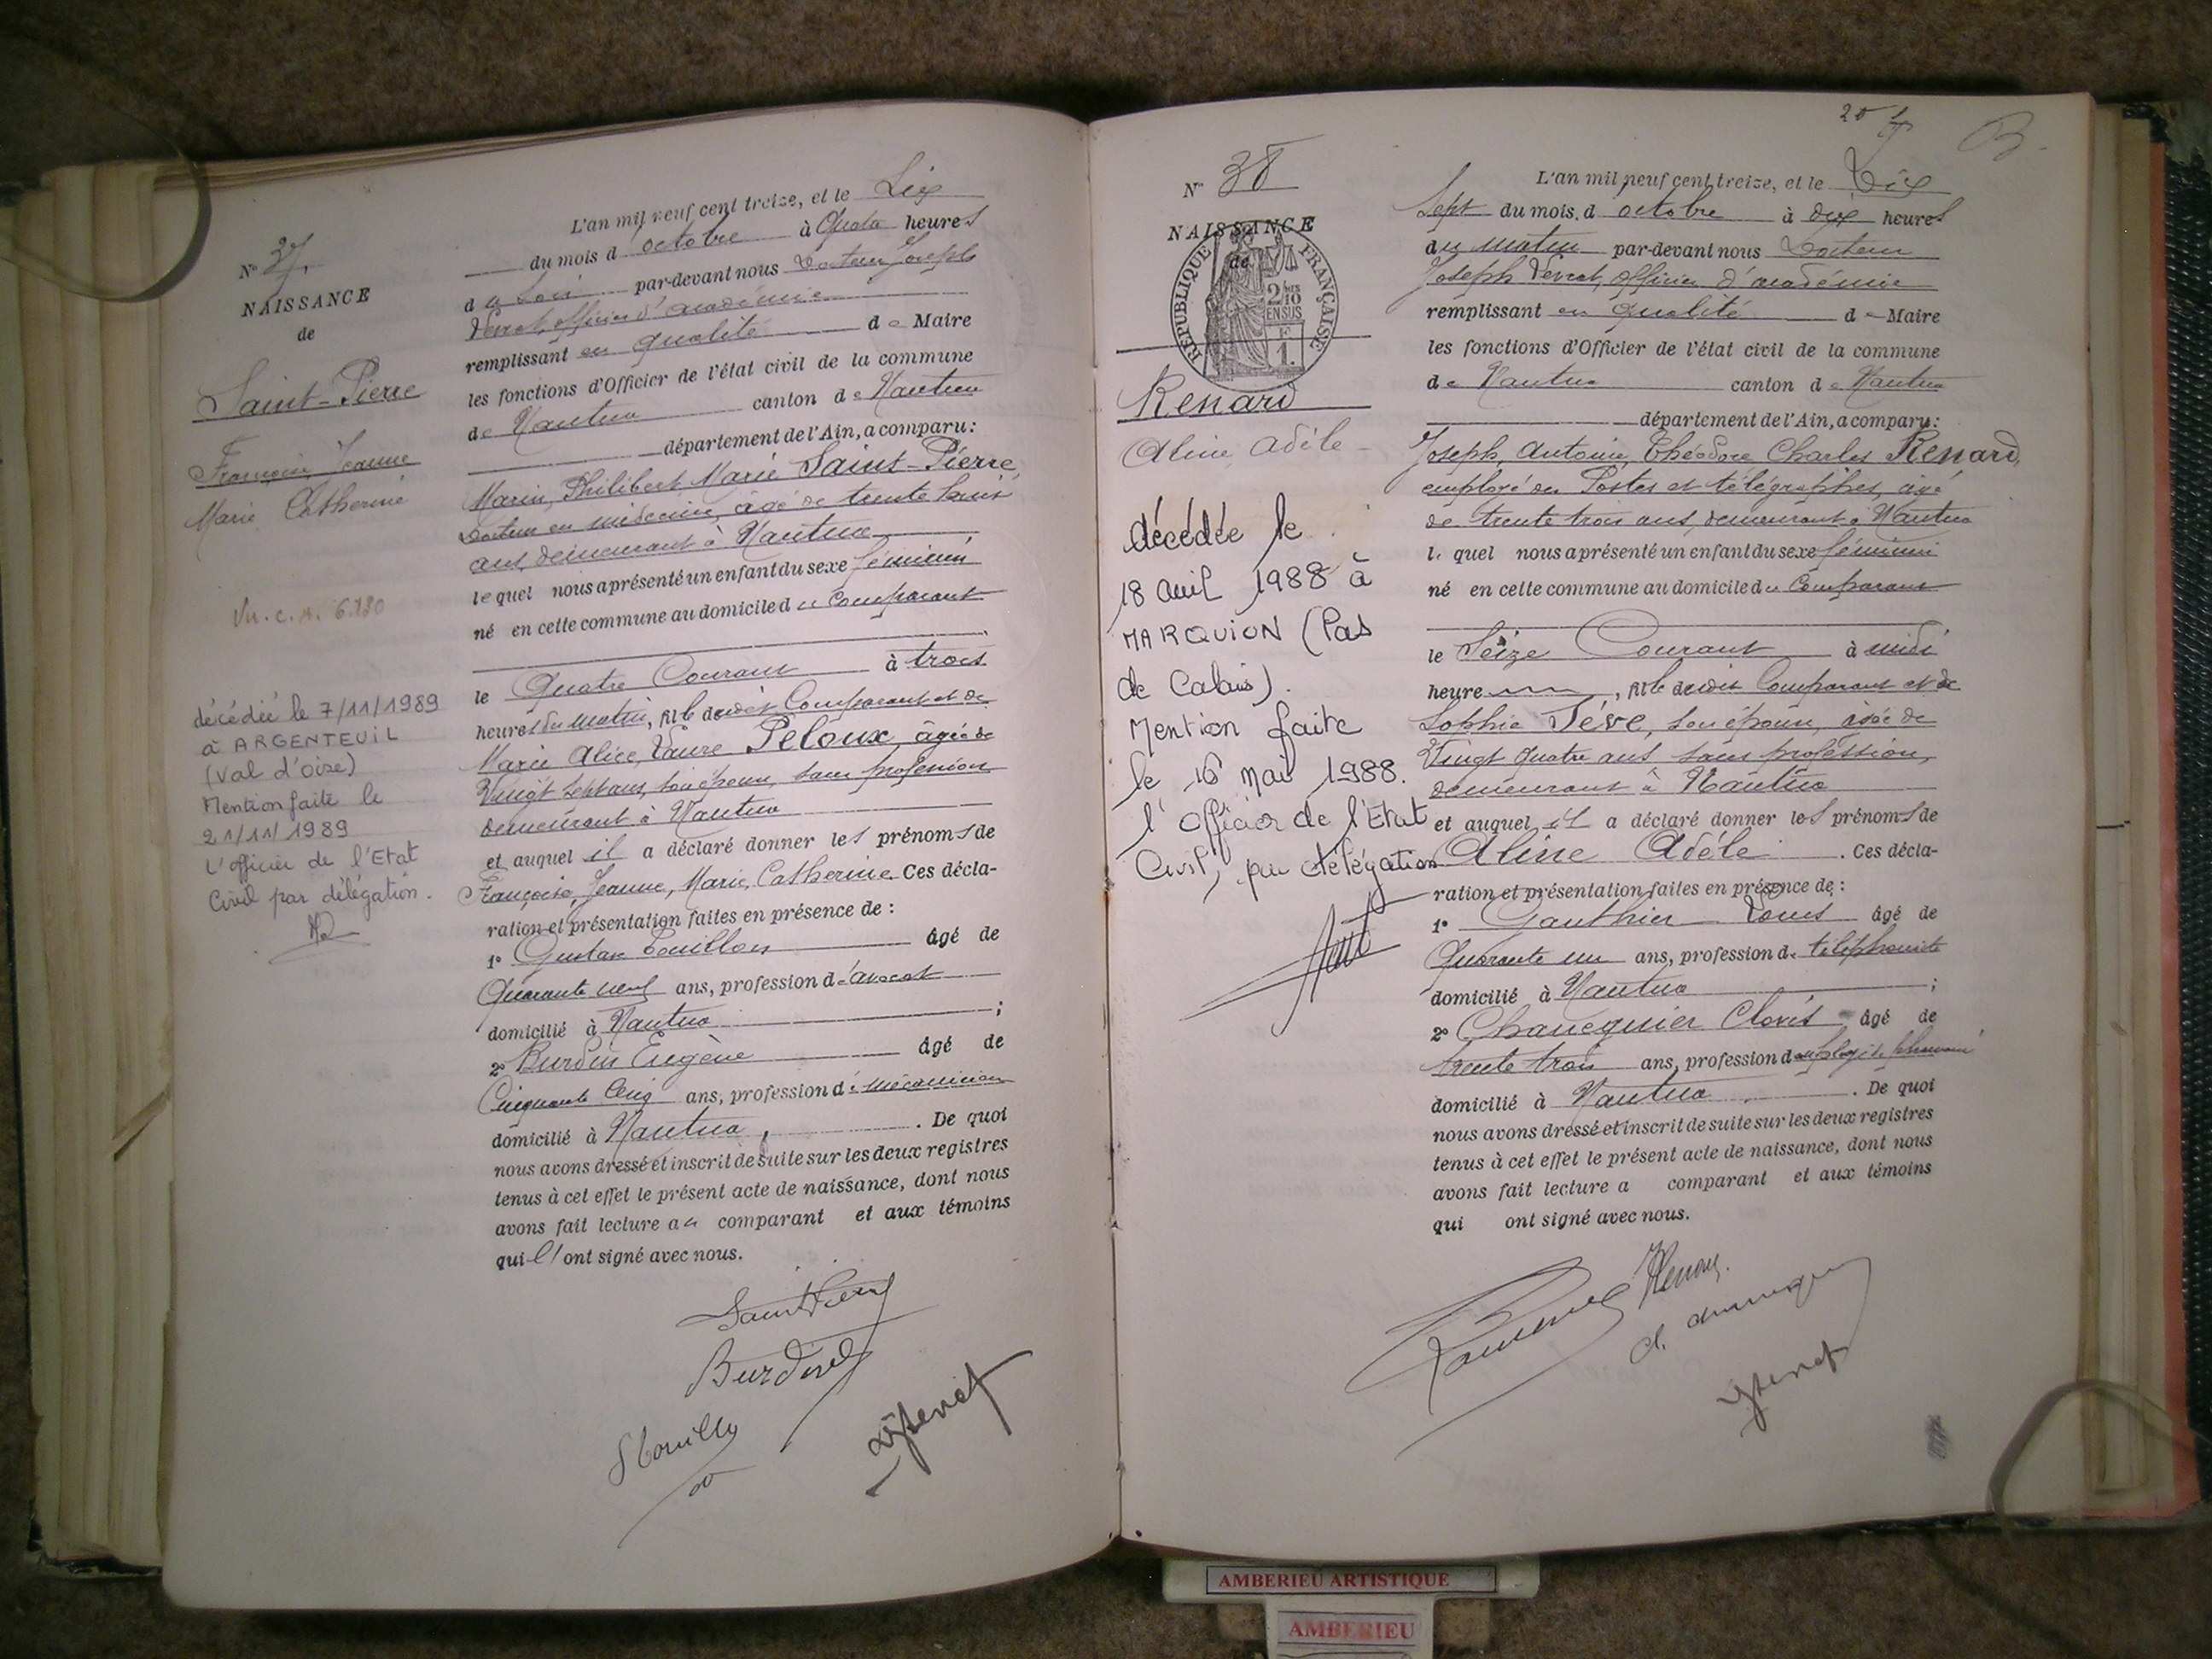 N° 37.
NAISSANCE
de
Saint-Pierre
Françoise Jeanne
Marie Catherine
Vu. C. A. 6.130
décédée le 7/11/1989
à ARGENTEUIL
(Val d'oise)
Mention faite le
21/11/1989
L'officier de l'Etat
Civil par délégation.
L'an mil neuf cent treize, et le Six
du mois d'octobre à Quatre heures
du Soir par-devant nous Docteur Joseph
officier d'académie
remplissant en qualité de Maire
les fonctions d'Officier de l'état civil de la commune
de Nantua canton de Nantua
département de l'Ain, a comparu:
Marin, Philibert Marie Saint-Pierre,
Docteur en médecine, âgé de trente
ans, demeurant à Nantua
lequel nous a présenté un enfant du sexe féminin
né en cette commune au domicile du Comparant
le Quatre Courant à trois
heures du matin, fille dudit Comparant et de
Marie Alice, Laure Peloux, âgée de
Vingt Sept ans, son épouse, sans profession
demeurant à Nantua
et auquel il a déclaré donner les prénoms de
Françoise, Jeanne, Marie, Catherine. Ces décla-
ration et présentation faites en présence de :
1° Gustave âgé de
Quarante neuf ans, profession d'avocat
domicilié à Nantua ;
2° Burdin Eugène âgé de
Cinquante Cinq ans, profession de mécanicien
domicilié à Nantua, . De quoi
nous avons dressé et inscrit de suite sur les deux registres
tenus à cet effet le présent acte de naissance, dont nous
avons fait lecture au comparant et aux témoins
qui ont signé avec nous.
Saint Pierre
Burdin
N° 38
NAISSANCE
de
RÉPUBLIQUE FRANÇAISE
2/10
EN SUS
1 F.
Renard
Aline Adèle
décédée le
18 avril 1988 à
MARQUION (Pas
de Calais).
Mention faite
le 16 Mai 1988.
l'officier de l'Etat
Civil, par délégation
L'an mil neuf cent treize, et le Dix
Sept du mois d'octobre à dix heures
du matin par-devant nous Docteur
Joseph officier d'académie
remplissant en qualité de Maire
les fonctions d'Officier de l'état civil de la commune
de Nantua canton de Nantua
département de l'Ain, a comparu:
Joseph, Antoine, Théodore Charles Renard,
employé des Postes et télégraphes, âgé
de trente trois ans, demeurant à Nantua
lequel nous a présenté un enfant du sexe féminin
né en cette commune au domicile du Comparant
le Seize Courant à midi
heure, fille dudit Comparant et de
Sophie Sève, son épouse, âgée de
Vingt quatre ans sans profession,
demeurant à Nantua
et auquel il a déclaré donner les prénoms de
Aline Adèle . Ces décla-
ration et présentation faites en présence de :
1° Gauthier Louis âgé de
Quarante un ans, profession de téléphoniste
domicilié à Nantua ;
2° Clovis âgé de
trente trois ans, profession d
domicilié à Nantua . De quoi
nous avons dressé et inscrit de suite sur les deux registres
tenus à cet effet le présent acte de naissance, dont nous
avons fait lecture a comparant et aux témoins
qui ont signé avec nous.
Renard
AMBERIEU ARTISTIQUE
AMBERIEU